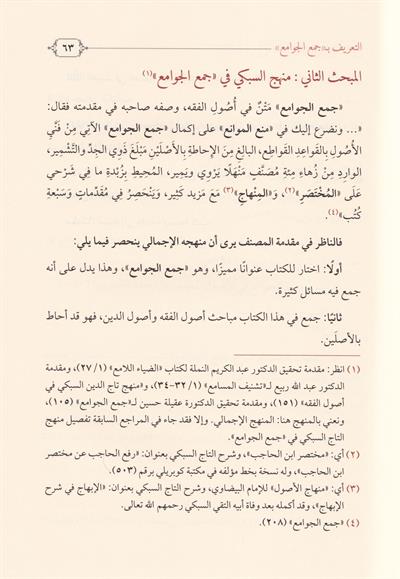 التعريف بـ«جمع الجوامع»
٦٣
المبحث الثاني : منهج السبكي في «جمع الجوامع»(١)
«جمع الجوامع» مَتْنٌ في أُصُولِ الفقه، وصفه صاحبه في مقدمته فقال:
«... ونضرع إليك في «منع الموانع» على إكمال «جمع الجوامع» الآتي مِنْ فَنَّيِ
الأُصُولِ بالقَواعِدِ القَواطِعِ، البالِغِ مِنَ الإحاطةِ بالأَصْلَيْنِ مَبْلَغَ ذَوِي الجِدِّ والتَّشْمِيرِ،
الوارِدِ مِنْ زُهَاءِ مِئةِ مُصَنَّفٍ مَنْهَلًا يَرْوِي ويَمِير، المُحِيطِ بِزُبْدَةِ ما في شَرْحَي
عَلَى «المُخْتَصَرِ»(٢)، وَ«المِنْهاجِ»(٣) مَعَ مَزيد كَثير، ويَنْحَصِرُ فِي مُقَدِّماتٍ وَسَبْعَةِ
كُتُب»(٤).
فالناظر في مقدمة المصنف يرى أن منهجه الإجمالي ينحصر فيما يلي:
أولًا: اختار للكتاب عنوانًا مميزًا، وهو «جمع الجوامع»، وهذا يدل على أنه
جمع فيه مسائل كثيرة.
ثانيًا: جمع في هذا الكتاب مباحث أصول الفقه وأصول الدين، فهو قد أحاط
بالأصلَين.
(١) انظر: مقدمة تحقيق الدكتور عبد الكريم النملة لكتاب «الضياء اللامع» (١/ ٢٧)، ومقدمة
الدكتور عبد الله ربيع لـ«تشنيف المسامع» (١/ ٣٢-٣٤)، و«منهج تاج الدين السبكي في
أصول الفقه» (١٥١)، ومقدمة تحقيق الدكتورة عقيلة حسين لـ«جمع الجوامع» (١٠٥)،
ونعني بالمنهج هنا: المنهج الإجمالي. وإلا فقد جاء في المراجع السابقة تفصيل منهج
التاج السبكي في «جمع الجوامع».
(٢) أي: «مختصر ابن الحاجب»، وشرح التاج السبكي بعنوان: «رفع الحاجب عن مختصر
ابن الحاجب»، وله نسخة بخط مؤلفه في مكتبة كوبريلي برقم (٥٠٣).
(٣) أي: «منهاج الأصول» للإمام البيضاوي، وشرح التاج السبكي بعنوان: «الإبهاج في شرح
الإبهاج»، وقد أكمله بعد وفاة أبيه التقي السبكي رحمهم الله تعالى.
(٤) «جمع الجوامع» (٢٠٨).